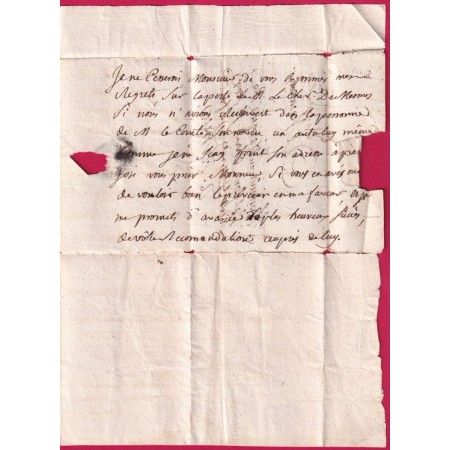 Je ne Cesserai Monsieur, de vous Exprimer mes
Regrets, Sur la perte de M. Le Chevr De
Si nous n'avions Recouvert dans la personne
de M. le Comte Son neveu un autre luy même
Comme je ne Scais point Son adresse à
jose vous prier Monsieur, Si vous en avez une
de vouloir bien le prevenir en ma faveur et je
me promets d'avance les plus heureux
de votre Recomandation aupres de luy.